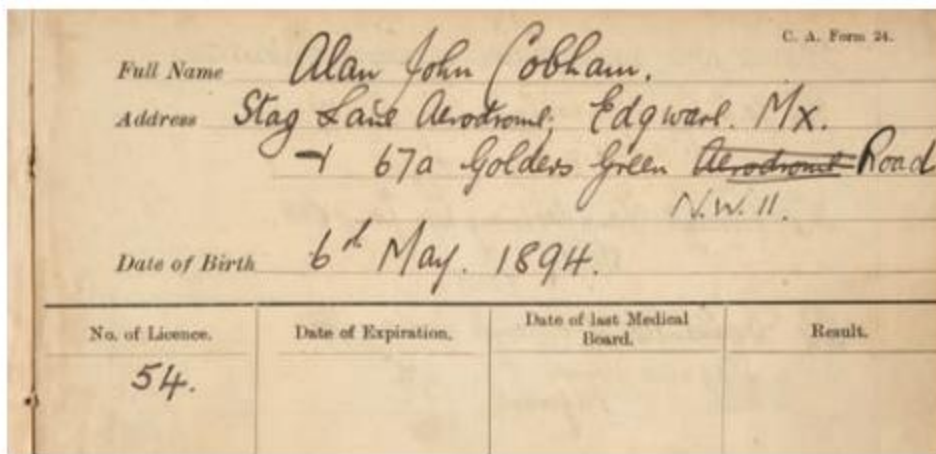 C. A. Form 24.
Full Name Alan John Cobham.
Address Stag Lane Aerodrome, Edgware. Mx.
+ 67a Golders Green Aerodrome Road
N.W. 11.
Date of Birth 6th May. 1894.
No. of Licence. Date of Expiration. Date of last Medical Board. Result.
54.